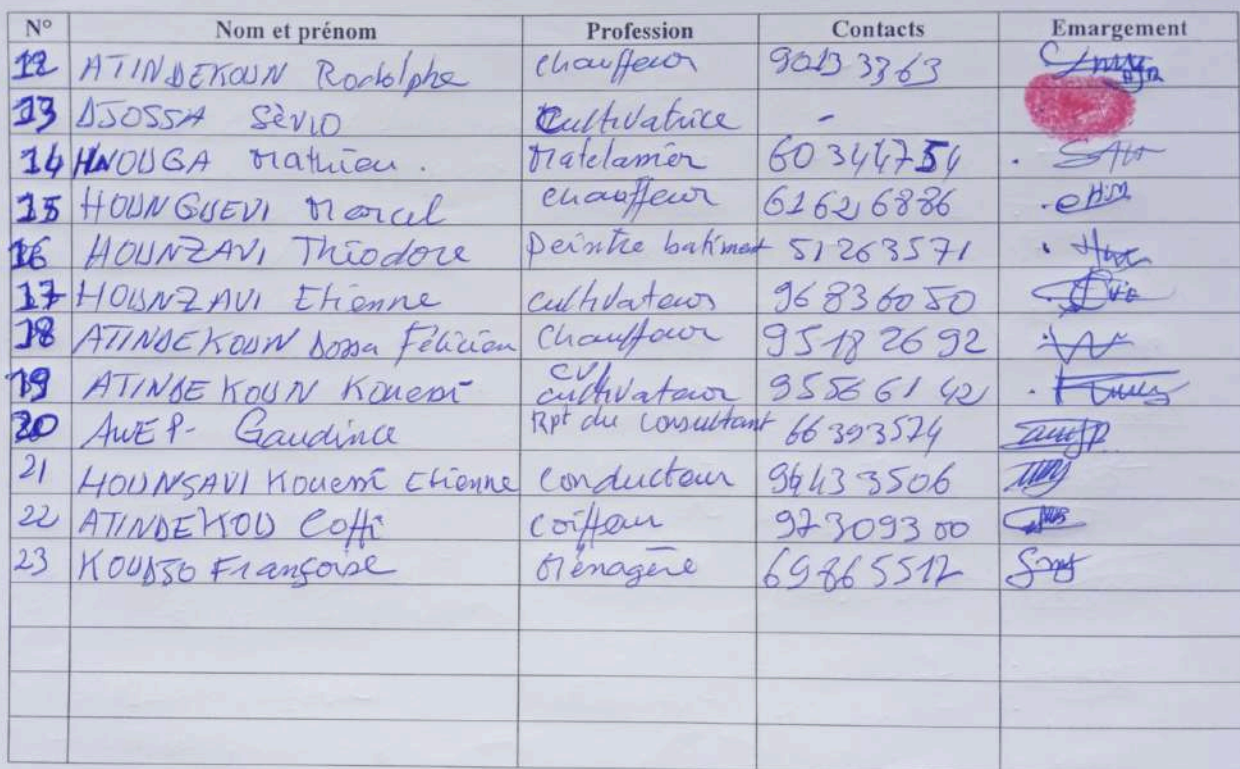 N° Nom et prénom Profession Contacts Emargement
12 ATINDEKOUN Rodolphe chauffeur 90133363
13 DJOSSA Sèvio Cultivatrice -
14 HNOUGA Mathieu. Matelassier 60344754
15 HOUNGUEVI Marcel chauffeur 61626886
16 HOUNZAVI Théodore Peintre batiment 51263571
17 HOUNZAVI Etienne cultivateur 96836050
18 ATINDEKOUN Dossa Félicien Chauffeur 95182692
19 ATINDEKOUN Kouessi cultivateur 95566142
20 AWE P. Gaudince Rpt du consultant 66393574
21 HOUNSAVI Kouessi Etienne conducteur 94433506
22 ATINDEKOU Coffi coiffeur 97309300
23 KOUDJO Françoise Ménagère 69865517